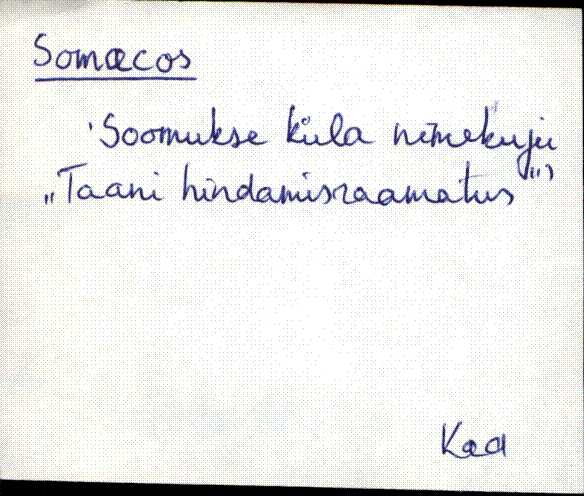 Somæcos
'Soomukse küla nimekuju
„Taani hindamisraamatus“'
Kad